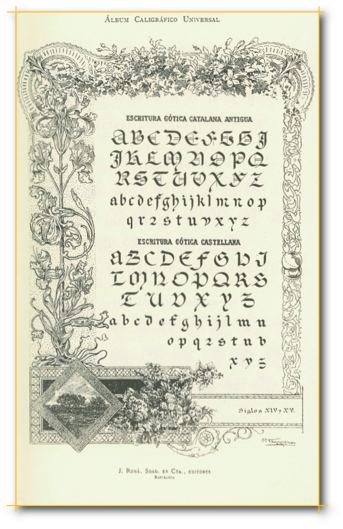 Álbum Caligráfico Universal
ESCRITURA GÓTICA CATALANA ANTIGUA
ABCDEFGHI
JKLMNOPQ
RSTUVXYZ
abcdefghijklmnop
qrzstuvxyz
ESCRITURA GÓTICA CASTELLANA
ABCDEFGHI
LMNOPQRS
TUVXYZ
abcdefghijlmn
opqrstuv
xyz
Siglos XIV y XV.
J. Romá, Soad. en Cta., editores
Barcelona